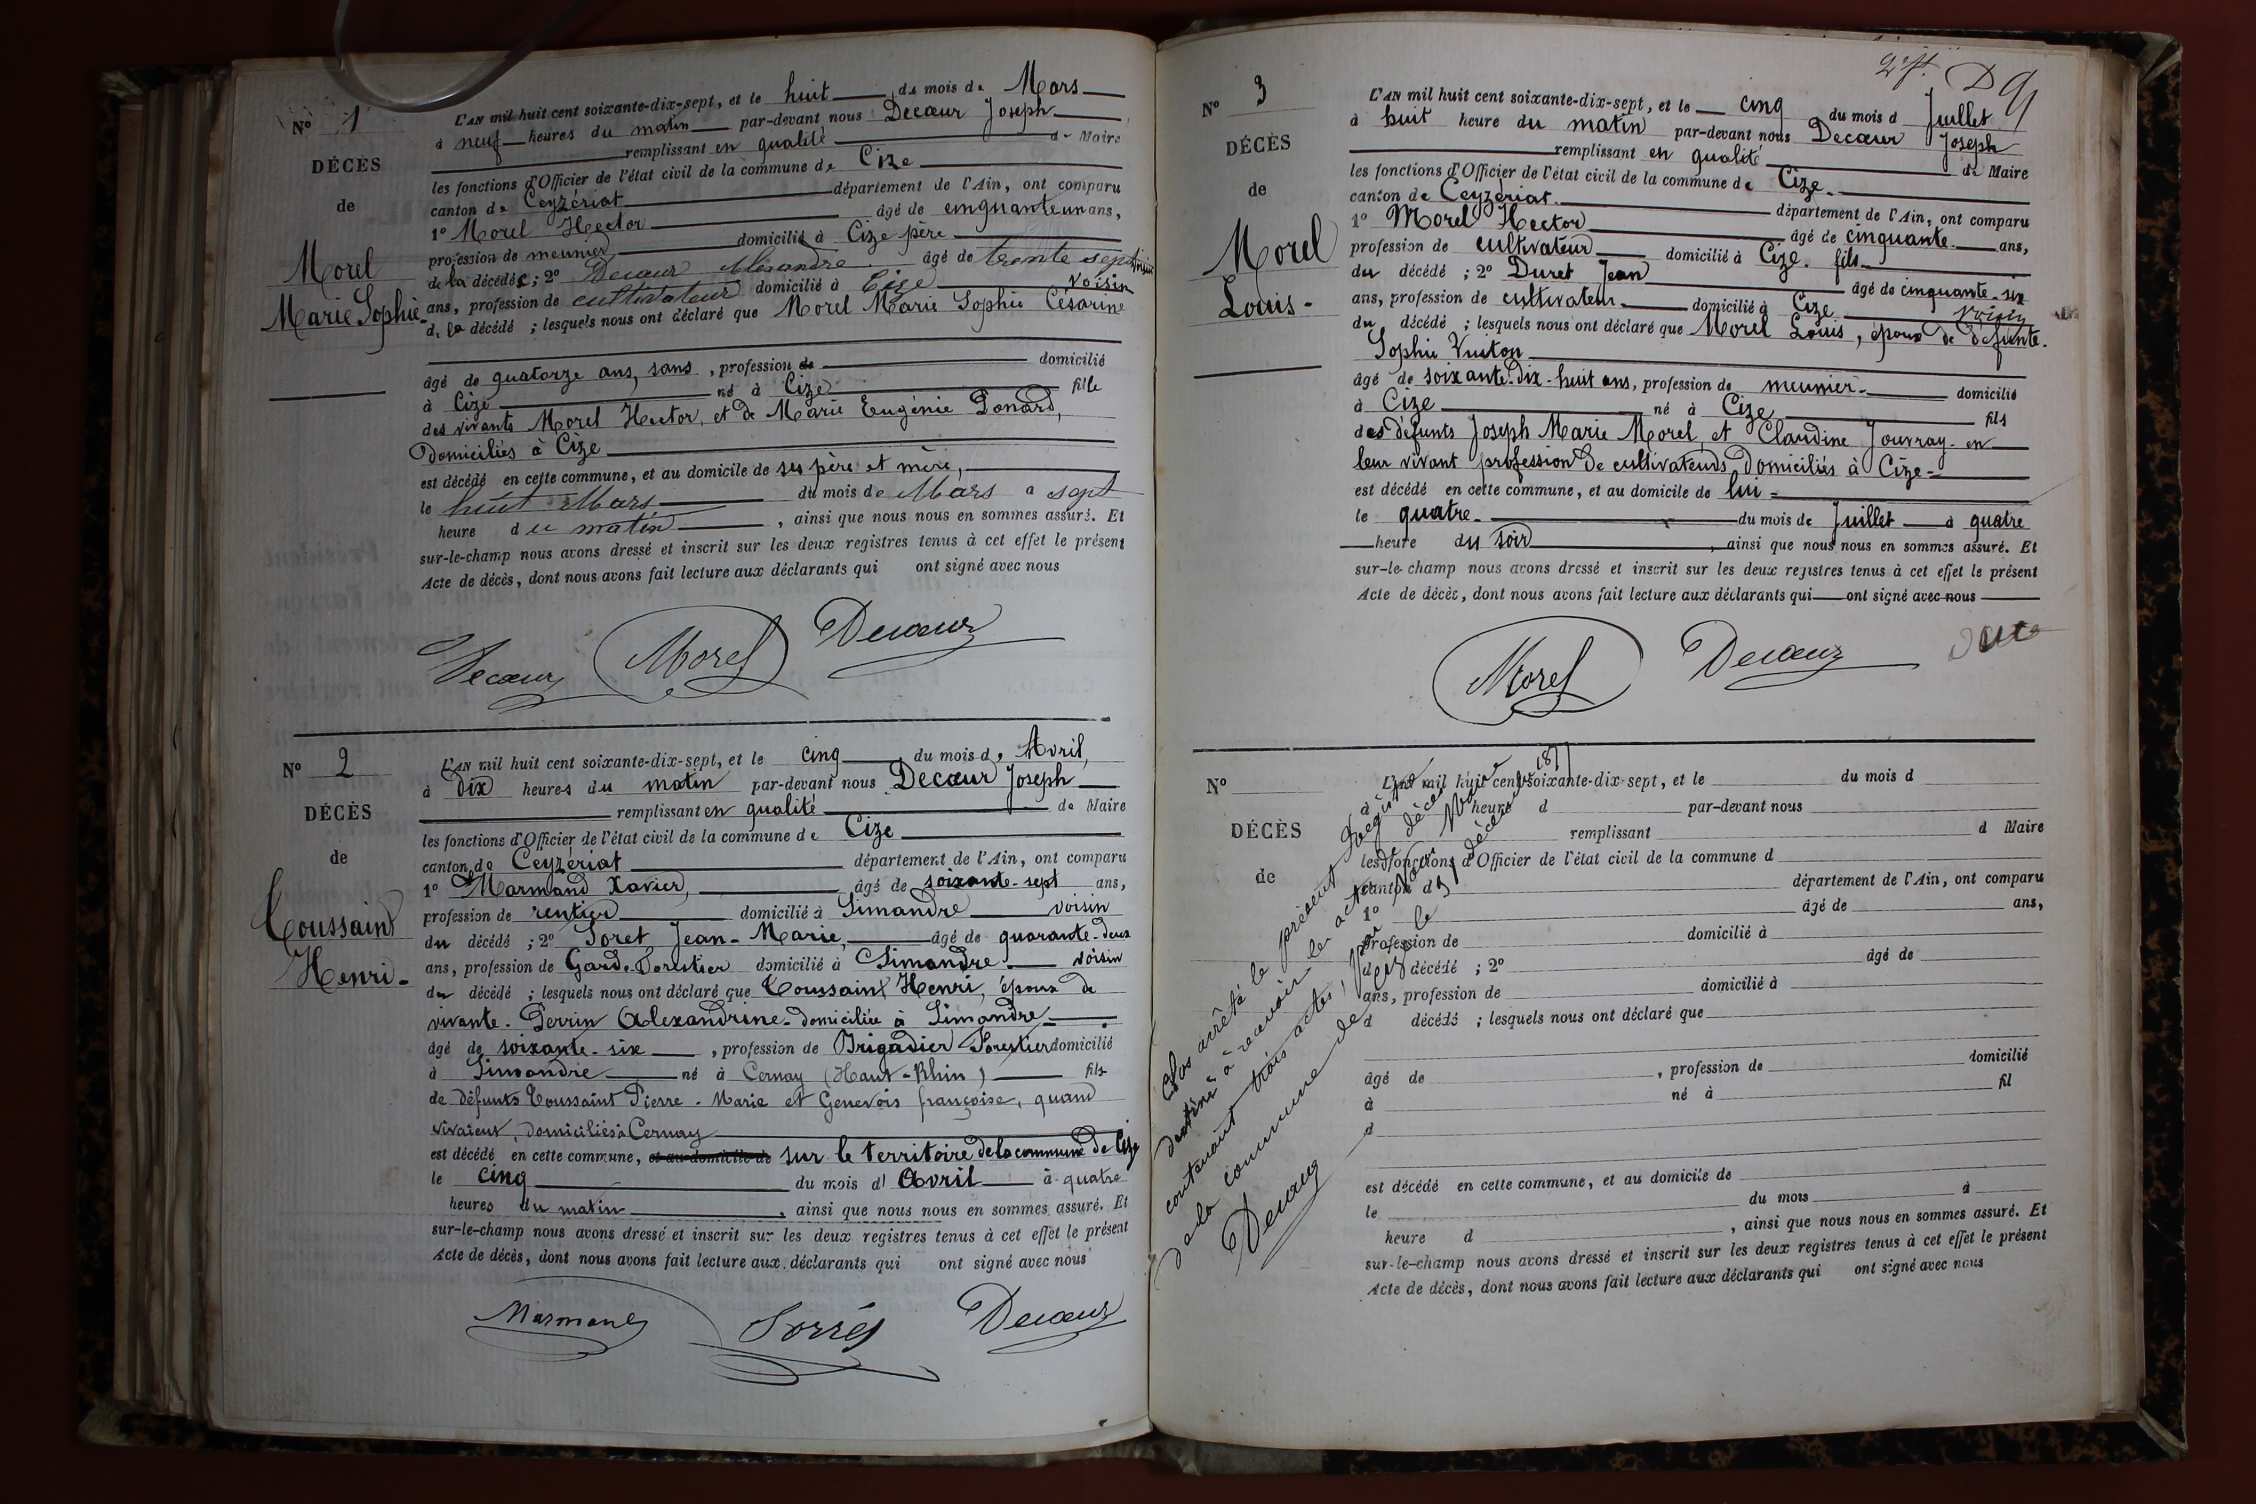 N° 1
DÉCÈS
de
Morel
Marie Sophie
L'AN mil huit cent soixante-dix-sept, et le huit du mois de Mars
à neuf heures du matin par-devant nous Decœur Joseph
remplissant en qualité de Maire
les fonctions d'Officier de l'état civil de la commune de Cize
canton de Ceyzériat département de l'Ain, ont comparu
1° Morel Hector âgé de cinquante un ans,
profession de meunier domicilié à Cize père
de la décédée ; 2° Decœur Alexandre âgé de trente sept
ans, profession de cultivateur domicilié à Cize voisin
de la décédé ; lesquels nous ont déclaré que Morel Marie Sophie Césarine
âgé de quatorze ans, sans , profession de domicilié
à Cize né à Cize fille
des vivants Morel Hector, et de Marie Eugénie Ponard,
Domiciliés à Cize
est décédé en cette commune, et au domicile de ses père et mère,
le huit Mars du mois de Mars à sept
heure du matin , ainsi que nous nous en sommes assuré. Et
sur-le-champ nous avons dressé et inscrit sur les deux registres tenus à cet effet le présent
Acte de décès, dont nous avons fait lecture aux déclarants qui ont signé avec nous
Decœur Morel Decœur
N° 2
DÉCÈS
de
Toussaint
Henri
L'AN mil huit cent soixante-dix-sept, et le cinq du mois d' Avril,
à dix heures du matin par-devant nous Decœur Joseph
remplissant en qualité de Maire
les fonctions d'Officier de l'état civil de la commune de Cize
canton de Ceyzériat département de l'Ain, ont comparu
1° Marmand Xavier, âgé de soixante-sept ans,
profession de rentier domicilié à Simandre voisin
du décédé ; 2° Soret Jean-Marie, âgé de quarante-deux
ans, profession de Garde Forestier domicilié à Simandre voisin
du décédé ; lesquels nous ont déclaré que Toussaint Henri, époux de
vivante Perrin Alexandrine domiciliée à Simandre
âgé de soixante-six , profession de Brigadier Forestier domicilié
à Simandre né à Cernay (Haut-Rhin) fils
de défunts Toussaint Pierre-Marie et Genevois françoise, quand
vivaient, domiciliés à Cernay
est décédé en cette commune, et au domicile de sur le territoire de la commune de Cize
le cinq du mois d' Avril à quatre
heures du matin , ainsi que nous nous en sommes assuré. Et
sur-le-champ nous avons dressé et inscrit sur les deux registres tenus à cet effet le présent
Acte de décès, dont nous avons fait lecture aux déclarants qui ont signé avec nous
Marmand Sorret Decœur
N° 3
DÉCÈS
de
Morel
Louis
L'AN mil huit cent soixante-dix-sept, et le cinq du mois d Juillet
à huit heure du matin par-devant nous Decœur Joseph
remplissant en qualité de Maire
les fonctions d'Officier de l'état civil de la commune de Cize
canton de Ceyzériat département de l'Ain, ont comparu
1° Morel Hector âgé de cinquante ans,
profession de cultivateur domicilié à Cize. fils
du décédé ; 2° Duret Jean âgé de cinquante-six
ans, profession de cultivateur domicilié à Cize voisin
du décédé ; lesquels nous ont déclaré que Morel Louis, époux de défunte
Sophie Vuiton
âgé de soixante-dix-huit ans, profession de meunier domicilié
à Cize né à Cize fils
des défunts Joseph Marie Morel, et Claudine Jouvray en
leur vivant profession de cultivateurs domiciliés à Cize
est décédé en cette commune, et au domicile de lui
le quatre du mois de Juillet à quatre
heure du soir , ainsi que nous nous en sommes assuré. Et
sur-le-champ nous avons dressé et inscrit sur les deux registres tenus à cet effet le présent
Acte de décès, dont nous avons fait lecture aux déclarants qui ont signé avec nous
Morel Decœur
N°
DÉCÈS
de
L'AN mil huit cent soixante-dix-sept, et le du mois d
à heure d par-devant nous
remplissant d Maire
les fonctions d'Officier de l'état civil de la commune d
canton d département de l'Ain, ont comparu
1° âgé de ans,
profession de domicilié à
d décédé ; 2° âgé de
ans, profession de domicilié à
d décédé ; lesquels nous ont déclaré que
âgé de , profession de domicilié
à né à fil
d
est décédé en cette commune, et au domicile de
le du mois à
heure d , ainsi que nous nous en sommes assuré. Et
sur-le-champ nous avons dressé et inscrit sur les deux registres tenus à cet effet le présent
Acte de décès, dont nous avons fait lecture aux déclarants qui ont signé avec nous
Clos arrêté le présent Registre
destiné à recevoir les actes de décès
contenant trois actes, par Nous Maire
de la commune de Cize le 31 décembre 1877
Decœur